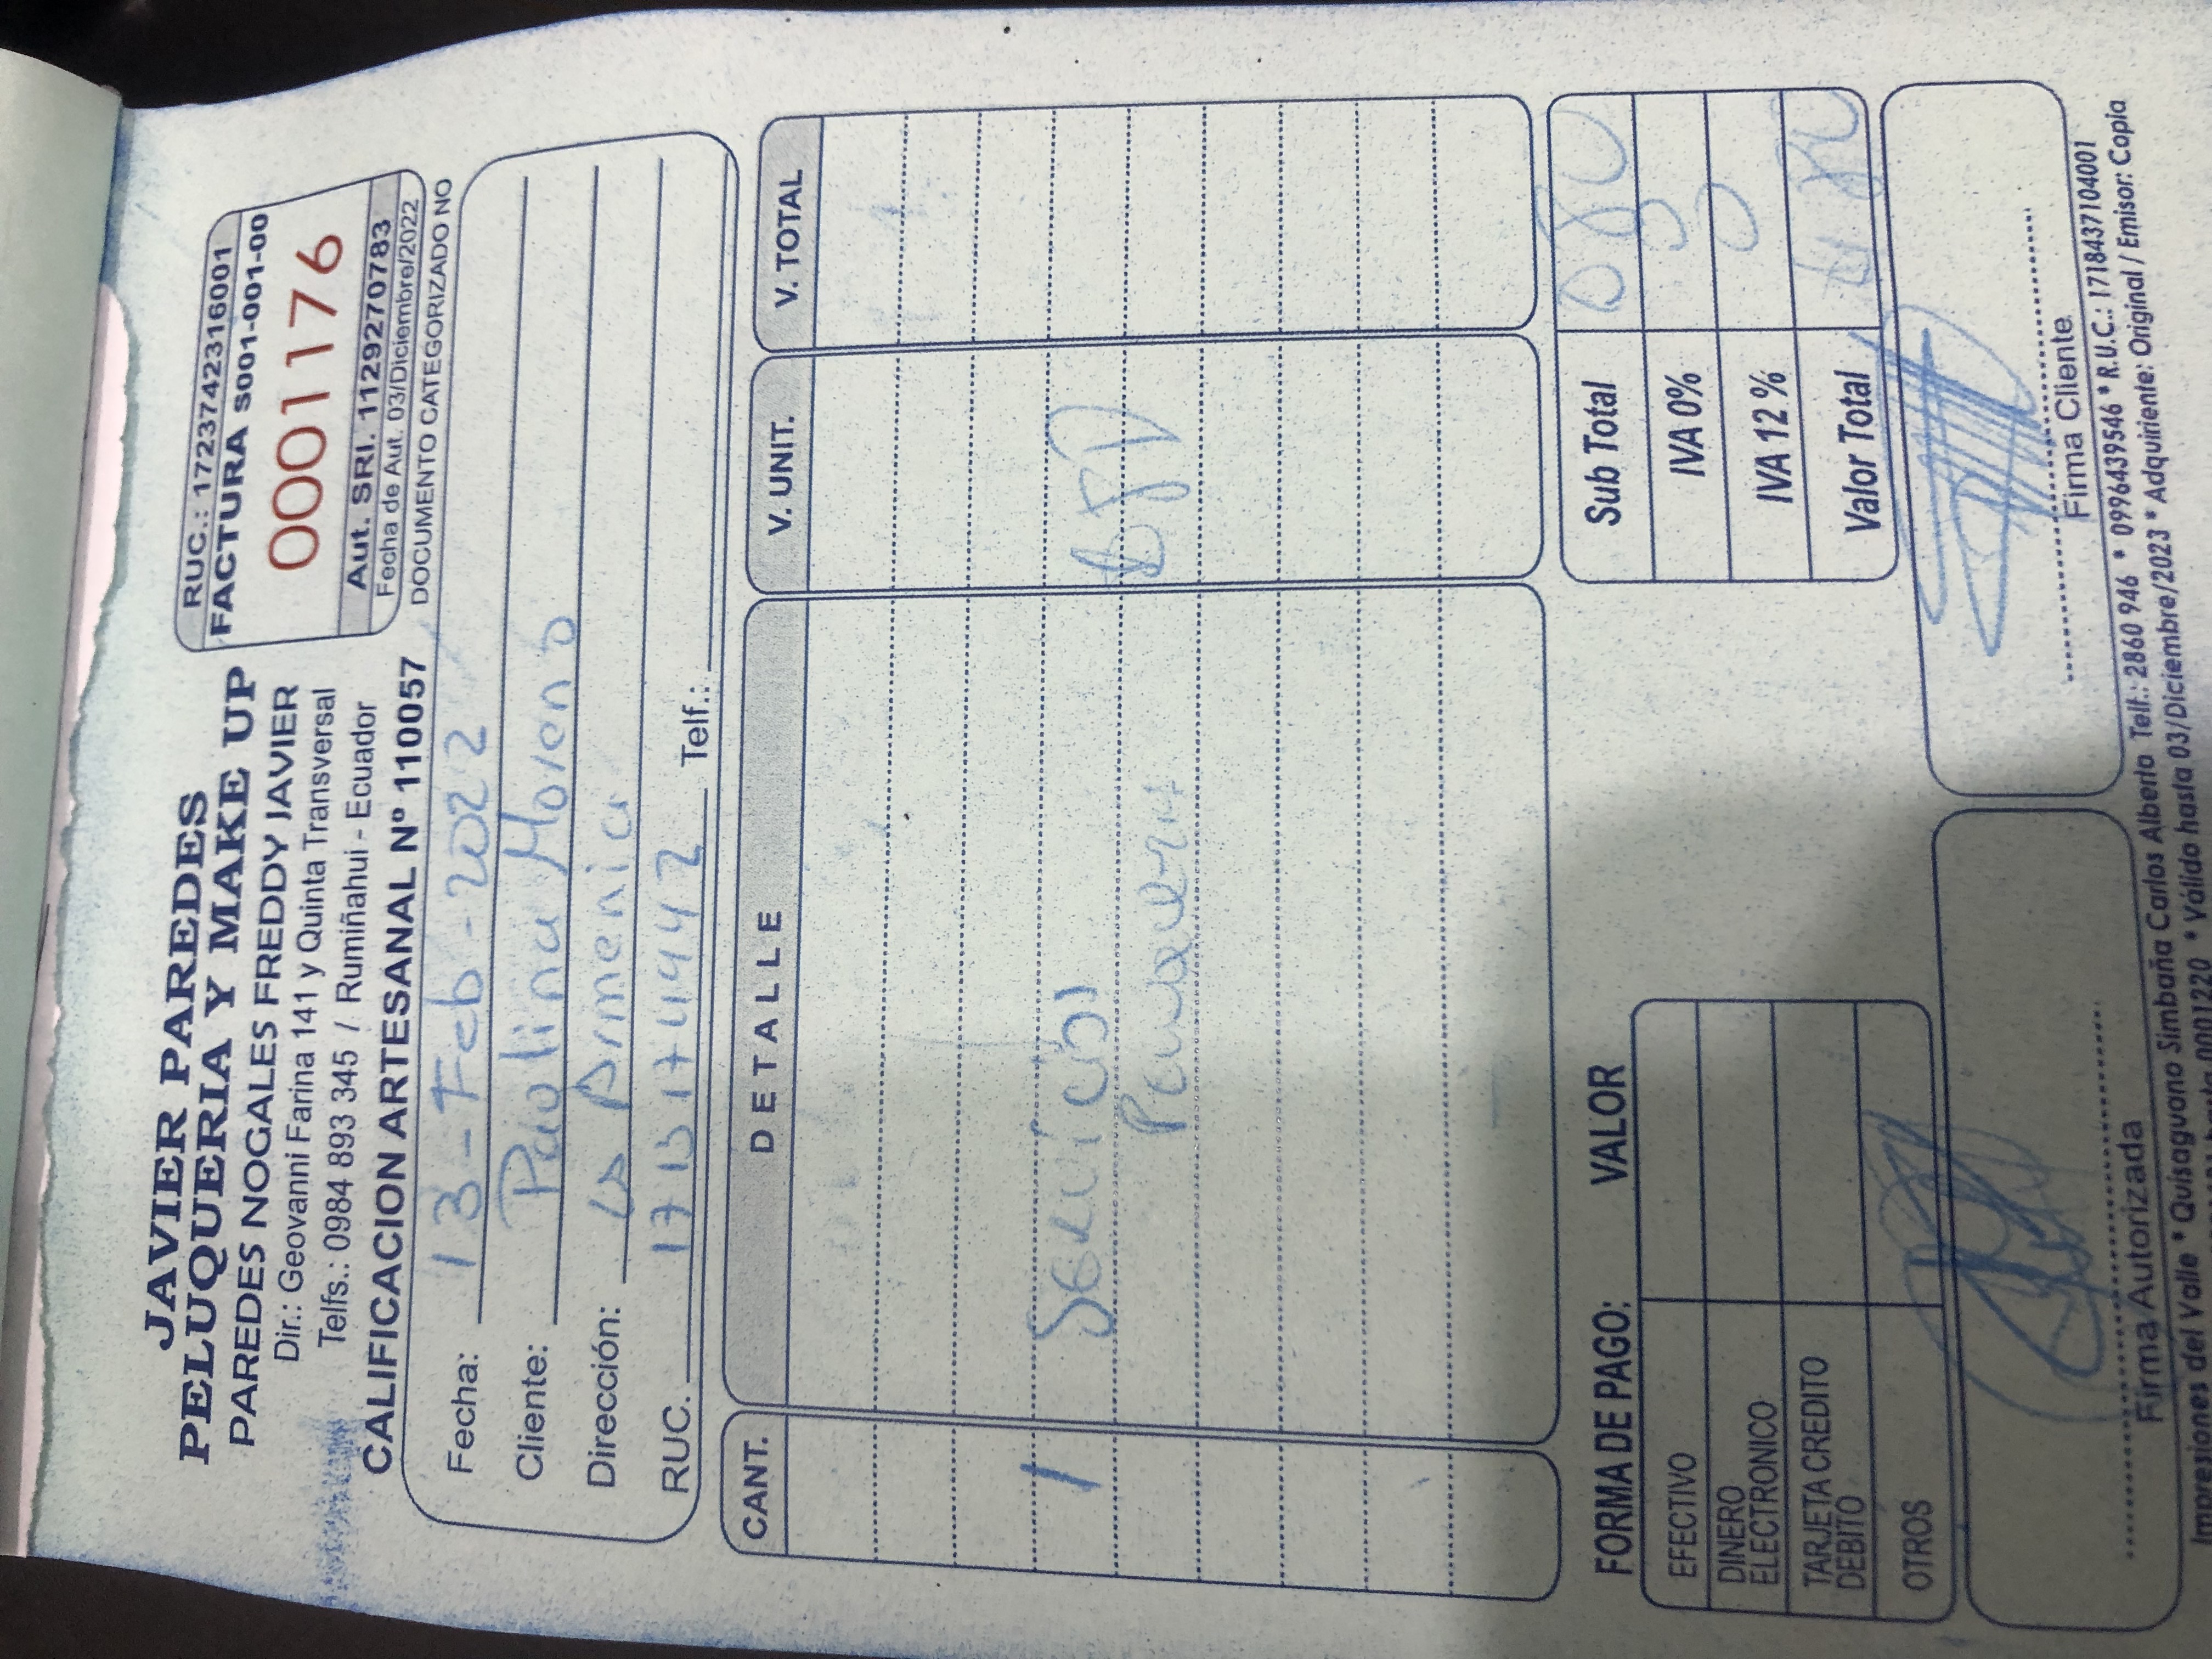 JAVIER PAREDES
PELUQUERIA Y MAKE UP
PAREDES NOGALES FREDDY JAVIER
Dir.: Geovanni Farina 141 y Quinta Transversal
Telfs.: 0984 893 345 / Rumiñahui - Ecuador
CALIFICACION ARTESANAL Nº 110057
RUC.: 1723742316001
FACTURA S001-001-00
0001176
Aut. SRI. 1129270783
Fecha de Aut. 03/Diciembre/2022
DOCUMENTO CATEGORIZADO NO
Fecha: 13-Feb-2022
Cliente: Paolina Moreno
Dirección: La Armenia
RUC. 1713174442 Telf.:
CANT. DETALLE V. UNIT. V. TOTAL
1 Servicios
FORMA DE PAGO: VALOR
EFECTIVO
DINERO
ELECTRONICO
TARJETA CREDITO
DEBITO
OTROS
Sub Total
IVA 0%
IVA 12 % 0
Valor Total
Firma Autorizada
Firma Cliente
Impresiones del Valle * Quisaguano Simbaña Carlos Alberto Telf.: 2860 946 * 0996439546 * R.U.C.: 1718437104001
hasta 0001220 * Válido hasta 03/Diciembre/2023 * Adquiriente: Original / Emisor: Copia